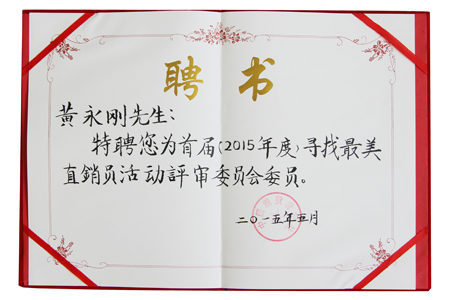 聘书
黄永刚先生:
特聘您为首届(2015年度)寻找最美
直銷员活动評审委员会委员。
二〇一五年五月